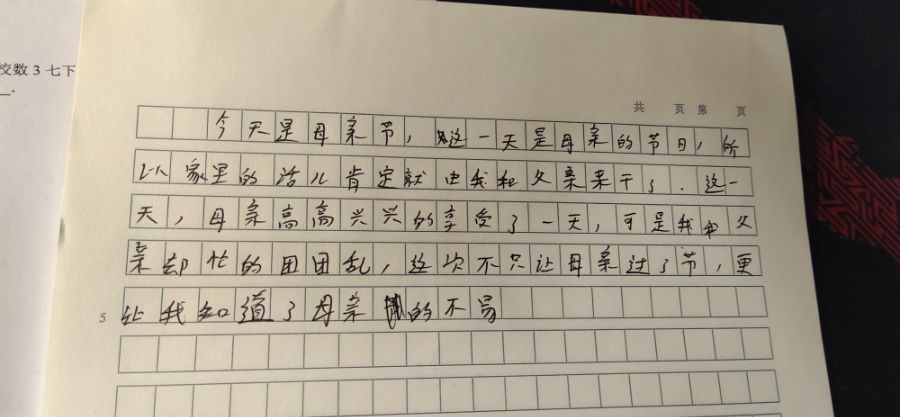 校数3 七下
共 页 第 页
今天是母亲节,这一天是母亲的节日,所
以家里的活儿肯定就由我和父亲来干了.这一
天,母亲高高兴兴的享受了一天,可是我和父
亲却忙的团团乱,这次不只让母亲过了节,更
5 让我知道了母亲的不易